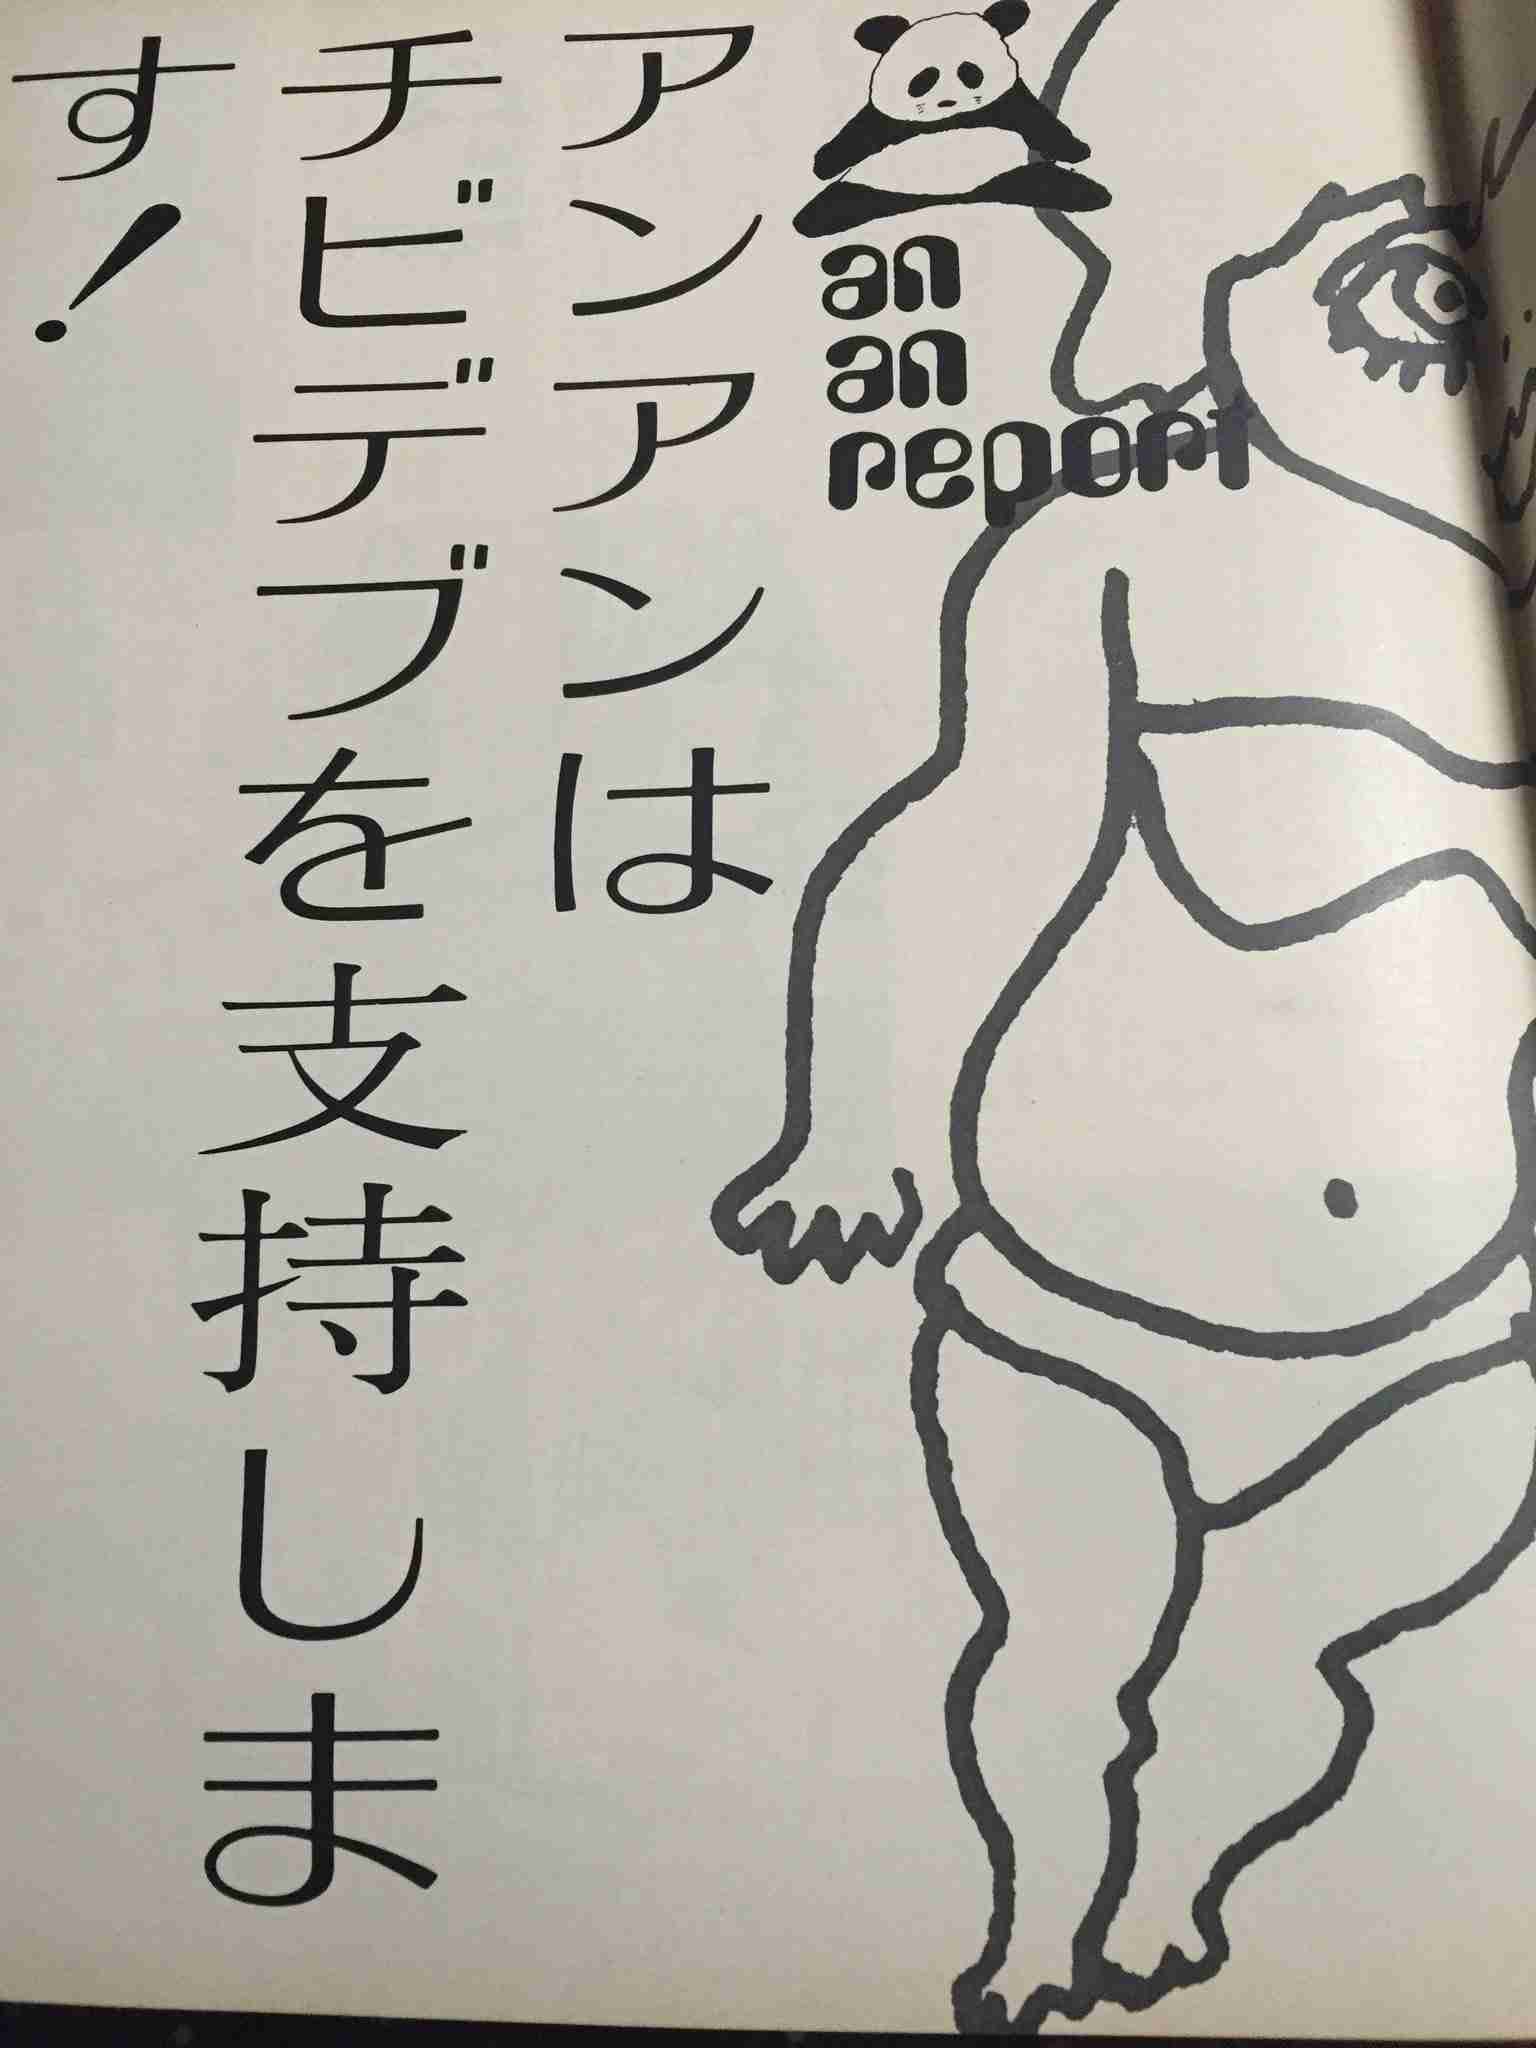 an
an
report
アンアンは
チビデブを支持しま
す！